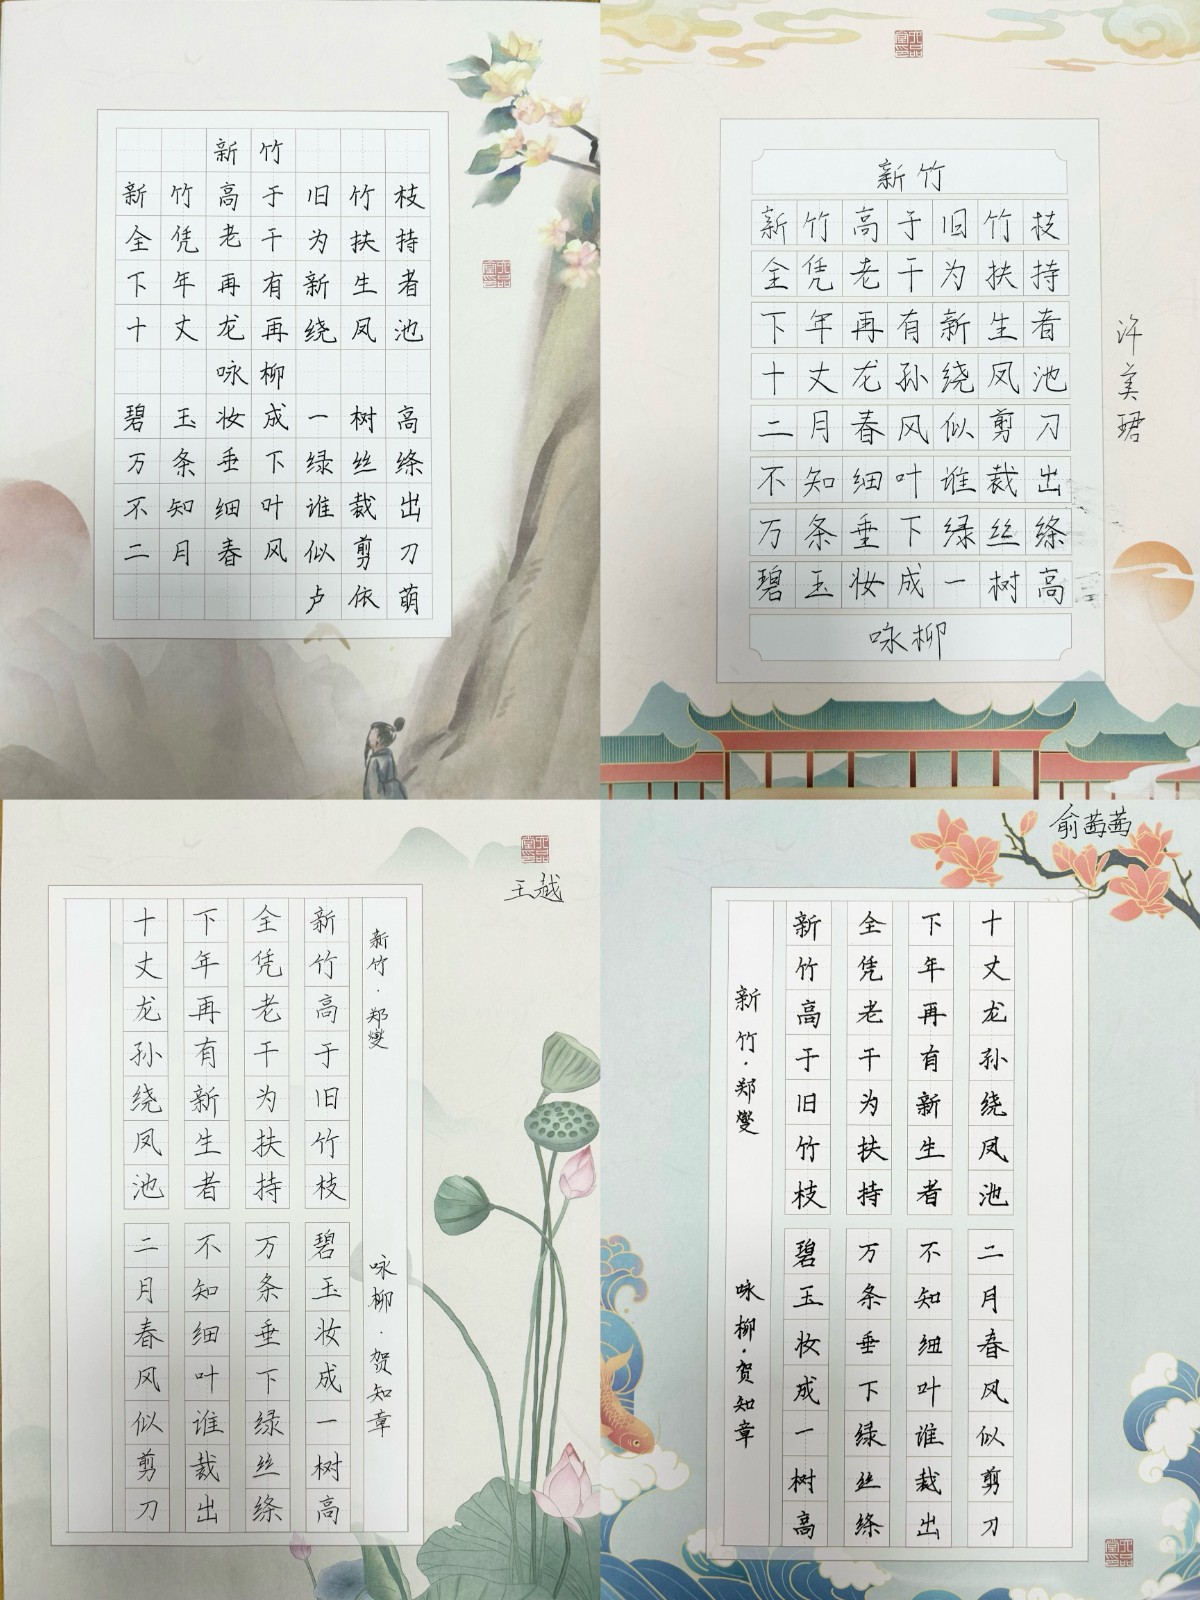 新竹
新竹高于旧竹枝
全凭老干为扶持
下年再有新生者
十丈龙再绕凤池
咏柳
碧玉妆成一树高
万条垂下绿丝绦
不知细叶谁裁出
二月春风似剪刀
卢依萌
新竹
新竹高于旧竹枝
全凭老干为扶持
下年再有新生者
十丈龙孙绕凤池
二月春风似剪刀
不知细叶谁裁出
万条垂下绿丝绦
碧玉妆成一树高
咏柳
许美珺
王越
新竹·郑燮
新竹高于旧竹枝
全凭老干为扶持
下年再有新生者
十丈龙孙绕凤池
咏柳·贺知章
碧玉妆成一树高
万条垂下绿丝绦
不知细叶谁裁出
二月春风似剪刀
俞茜茜
新竹·郑燮
新竹高于旧竹枝
全凭老干为扶持
下年再有新生者
十丈龙孙绕凤池
咏柳·贺知章
碧玉妆成一树高
万条垂下绿丝绦
不知细叶谁裁出
二月春风似剪刀